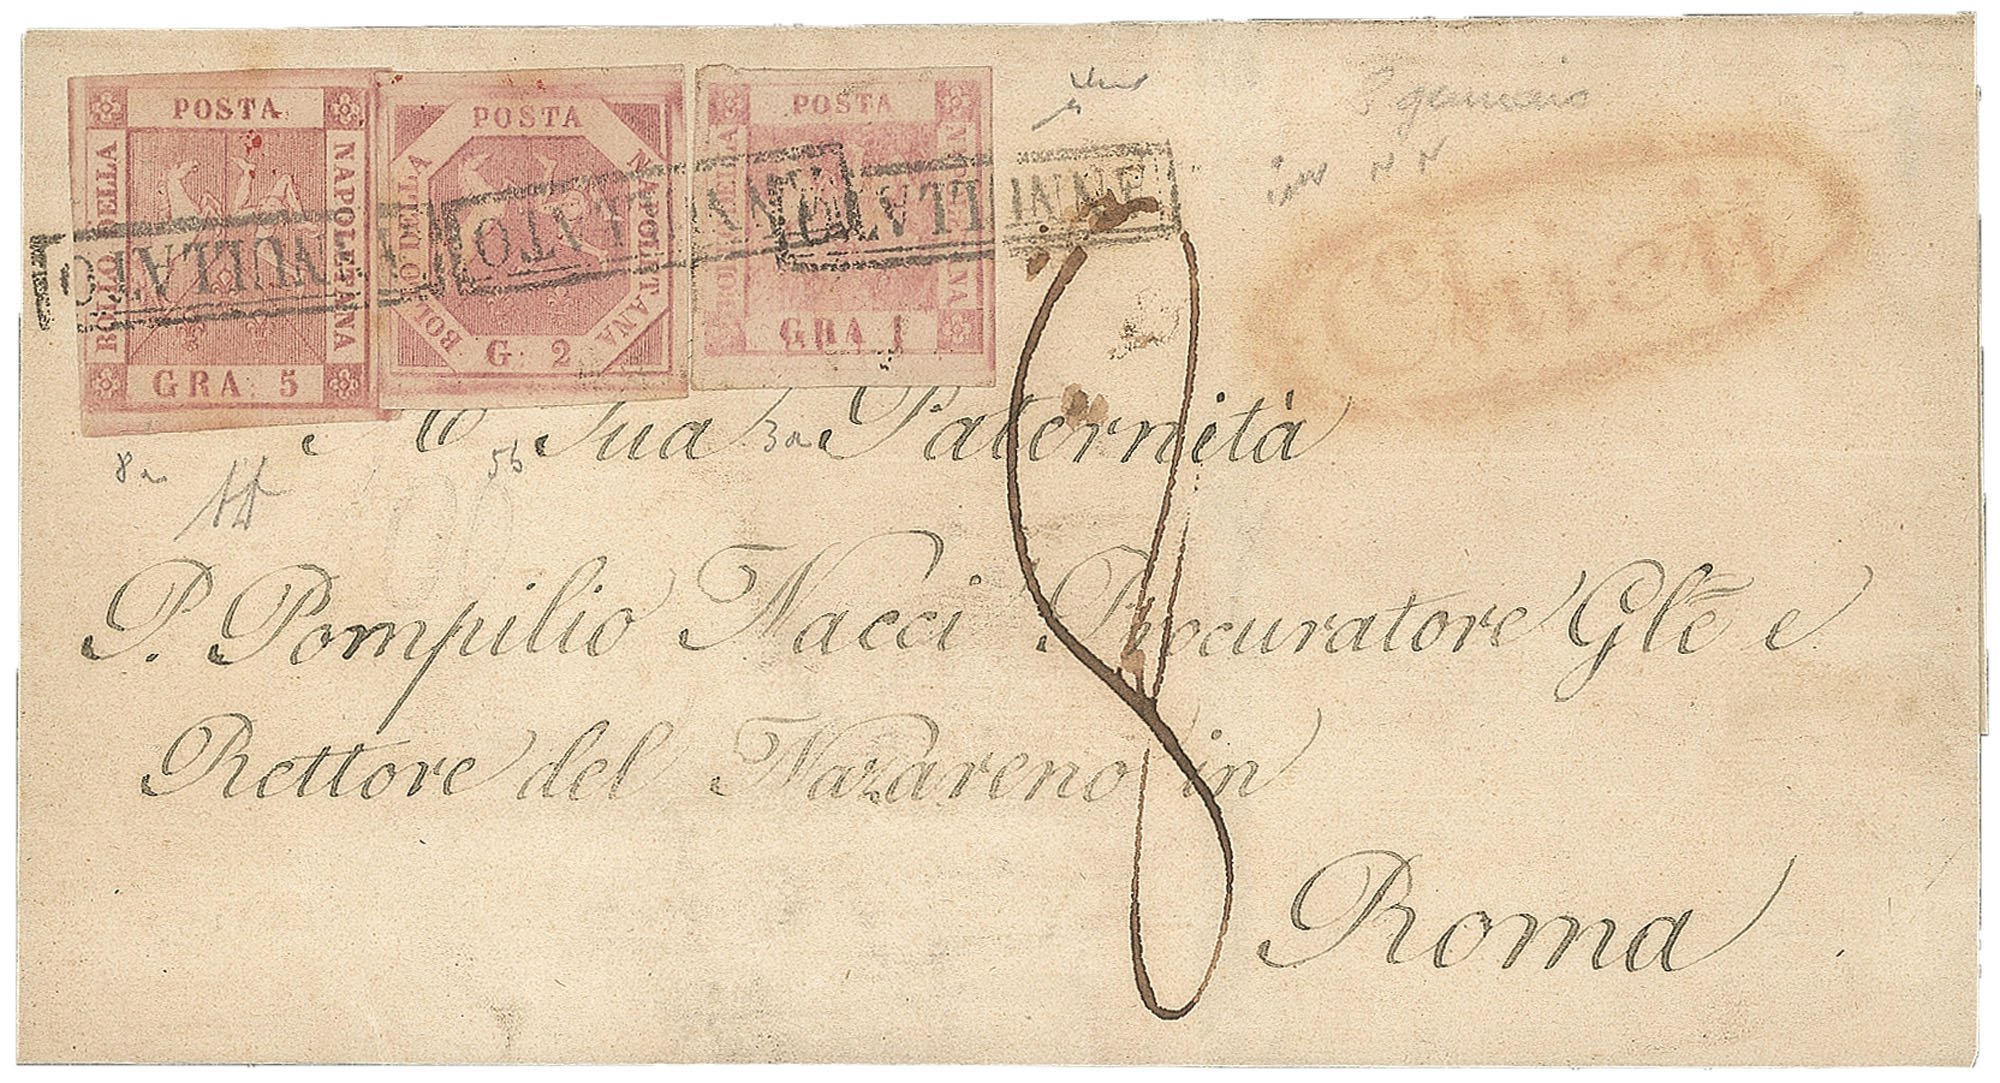 POSTA
BOLLO DELLA
NAPOLETANA
GRA. 5
POSTA
BOLLO DELLA
NAPOLITANA
G. 2
POSTA
BOLLO DELLA
GRA 1
ANNULLATO
ANNULLATO
ANNULLATO
8 gennaio
Chieti
A Sua Paternità
8a
5b
3a
8
P. Pompilio Nacci Procuratore Glē e
Rettore del Nazareno in
Roma